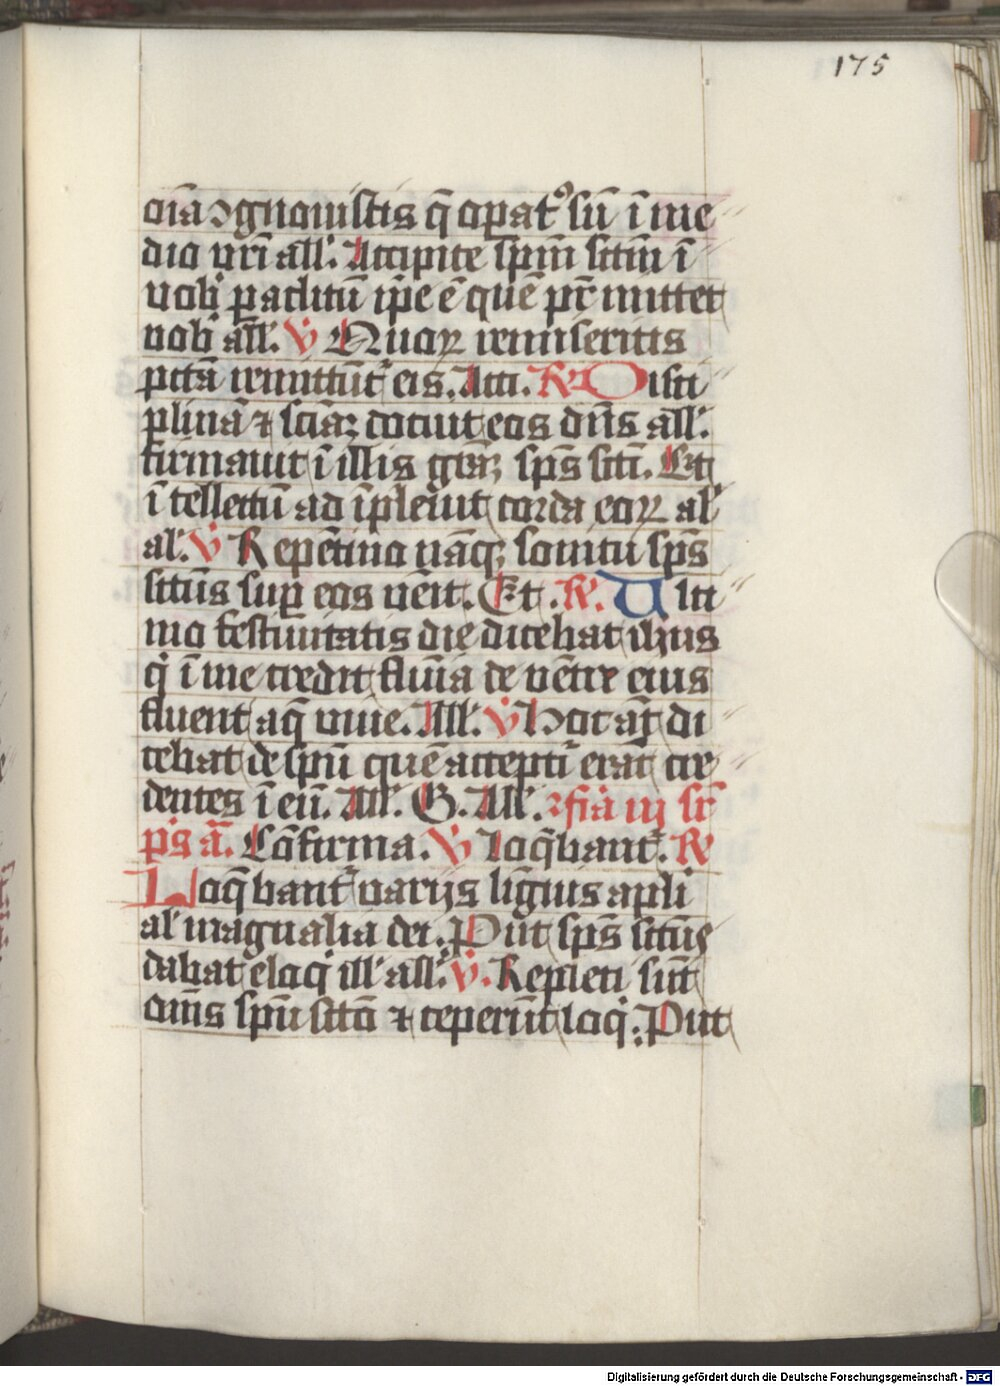 175
oīa ꝯgnouistis q̄ oꝑatꝰ sū ī me
dio vr̄i all'. Accipite spm̄ sctm̄ ī
uob' ꝑaclitū ip̄e ē quē pr̄ mittet
uob' all'. V̄ Quoꝝ remiseritis
pctā remittūt' eis. Acci. R̄ Disci
plinā ⁊ sciāꝫ docuit eos dn̄s all'.
firmauit ī illis gr̄aꝫ sp̄s sctī. Et
ītellectū ad īpleuit corda eoꝝ al'
al'. V̄ Repētino nāqꝫ sonitu sp̄s
sctūs suꝑ eos vēit. Et. R̄. Ulti
mo festiuitatis die dicebat ihus
q' ī me credit flumīa de vētre eius
fluent aq̄ viue. All'. V̄ Hoc aūt di
cebat de spū quē accepti' erāt cre
dentes ī eū. All'. G. All'. fīa iij scd'
p̄s ā. Cōfirma. V̄ Loq̄bant'. R̄
Loq̄bant' varijs līguis apli
al' magnalia dei. Put sp̄s sctūs
dabat eloq' ill' all'. V̄. Repleti sūt
om̄s spū sctō ⁊ ceperūt loq'. Put
Digitalisierung gefördert durch die Deutsche Forschungsgemeinschaft - DFG